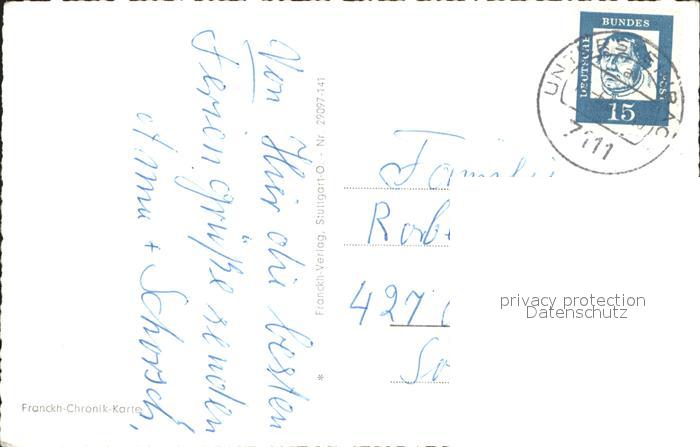 Von Hier die besten
Feriengrüße senden
Anna + Schorsch,
Franckh-Chronik-Karte
Franckh-Verlag, Stuttgart-O. - Nr. 29097-141
*
DEUTSCHE BUNDESPOST
15
7111
Familie
427
privacy protection
Datenschutz